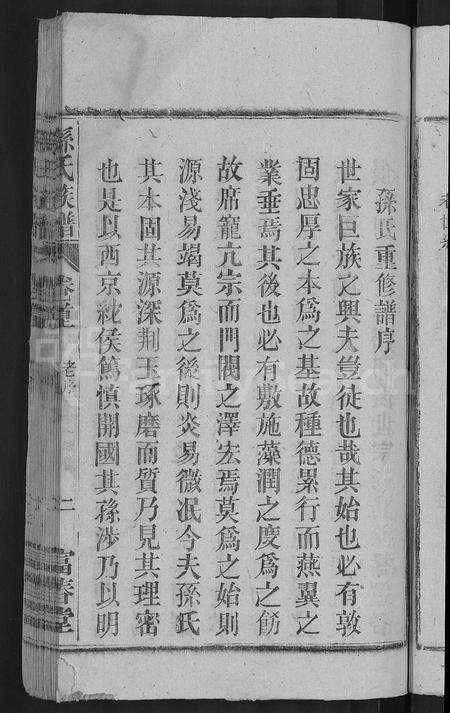 孫氏重修譜序
世家巨族之興夫豈徒也哉其始也必有敦
固忠厚之本為之基故種德累行而燕翼之
業垂焉其後也必有敷施藻潤之度為之飭
故席寵亢宗而門閥之澤宏焉莫為之始則
源淺易竭莫為之後則炎易微泯今夫孫氏
其本固其源深荆玉琢磨而質乃見其理密
也是以西京侯篤慎開國其孫渉乃以明
孫氏族譜 卷首 老序 二 富春堂